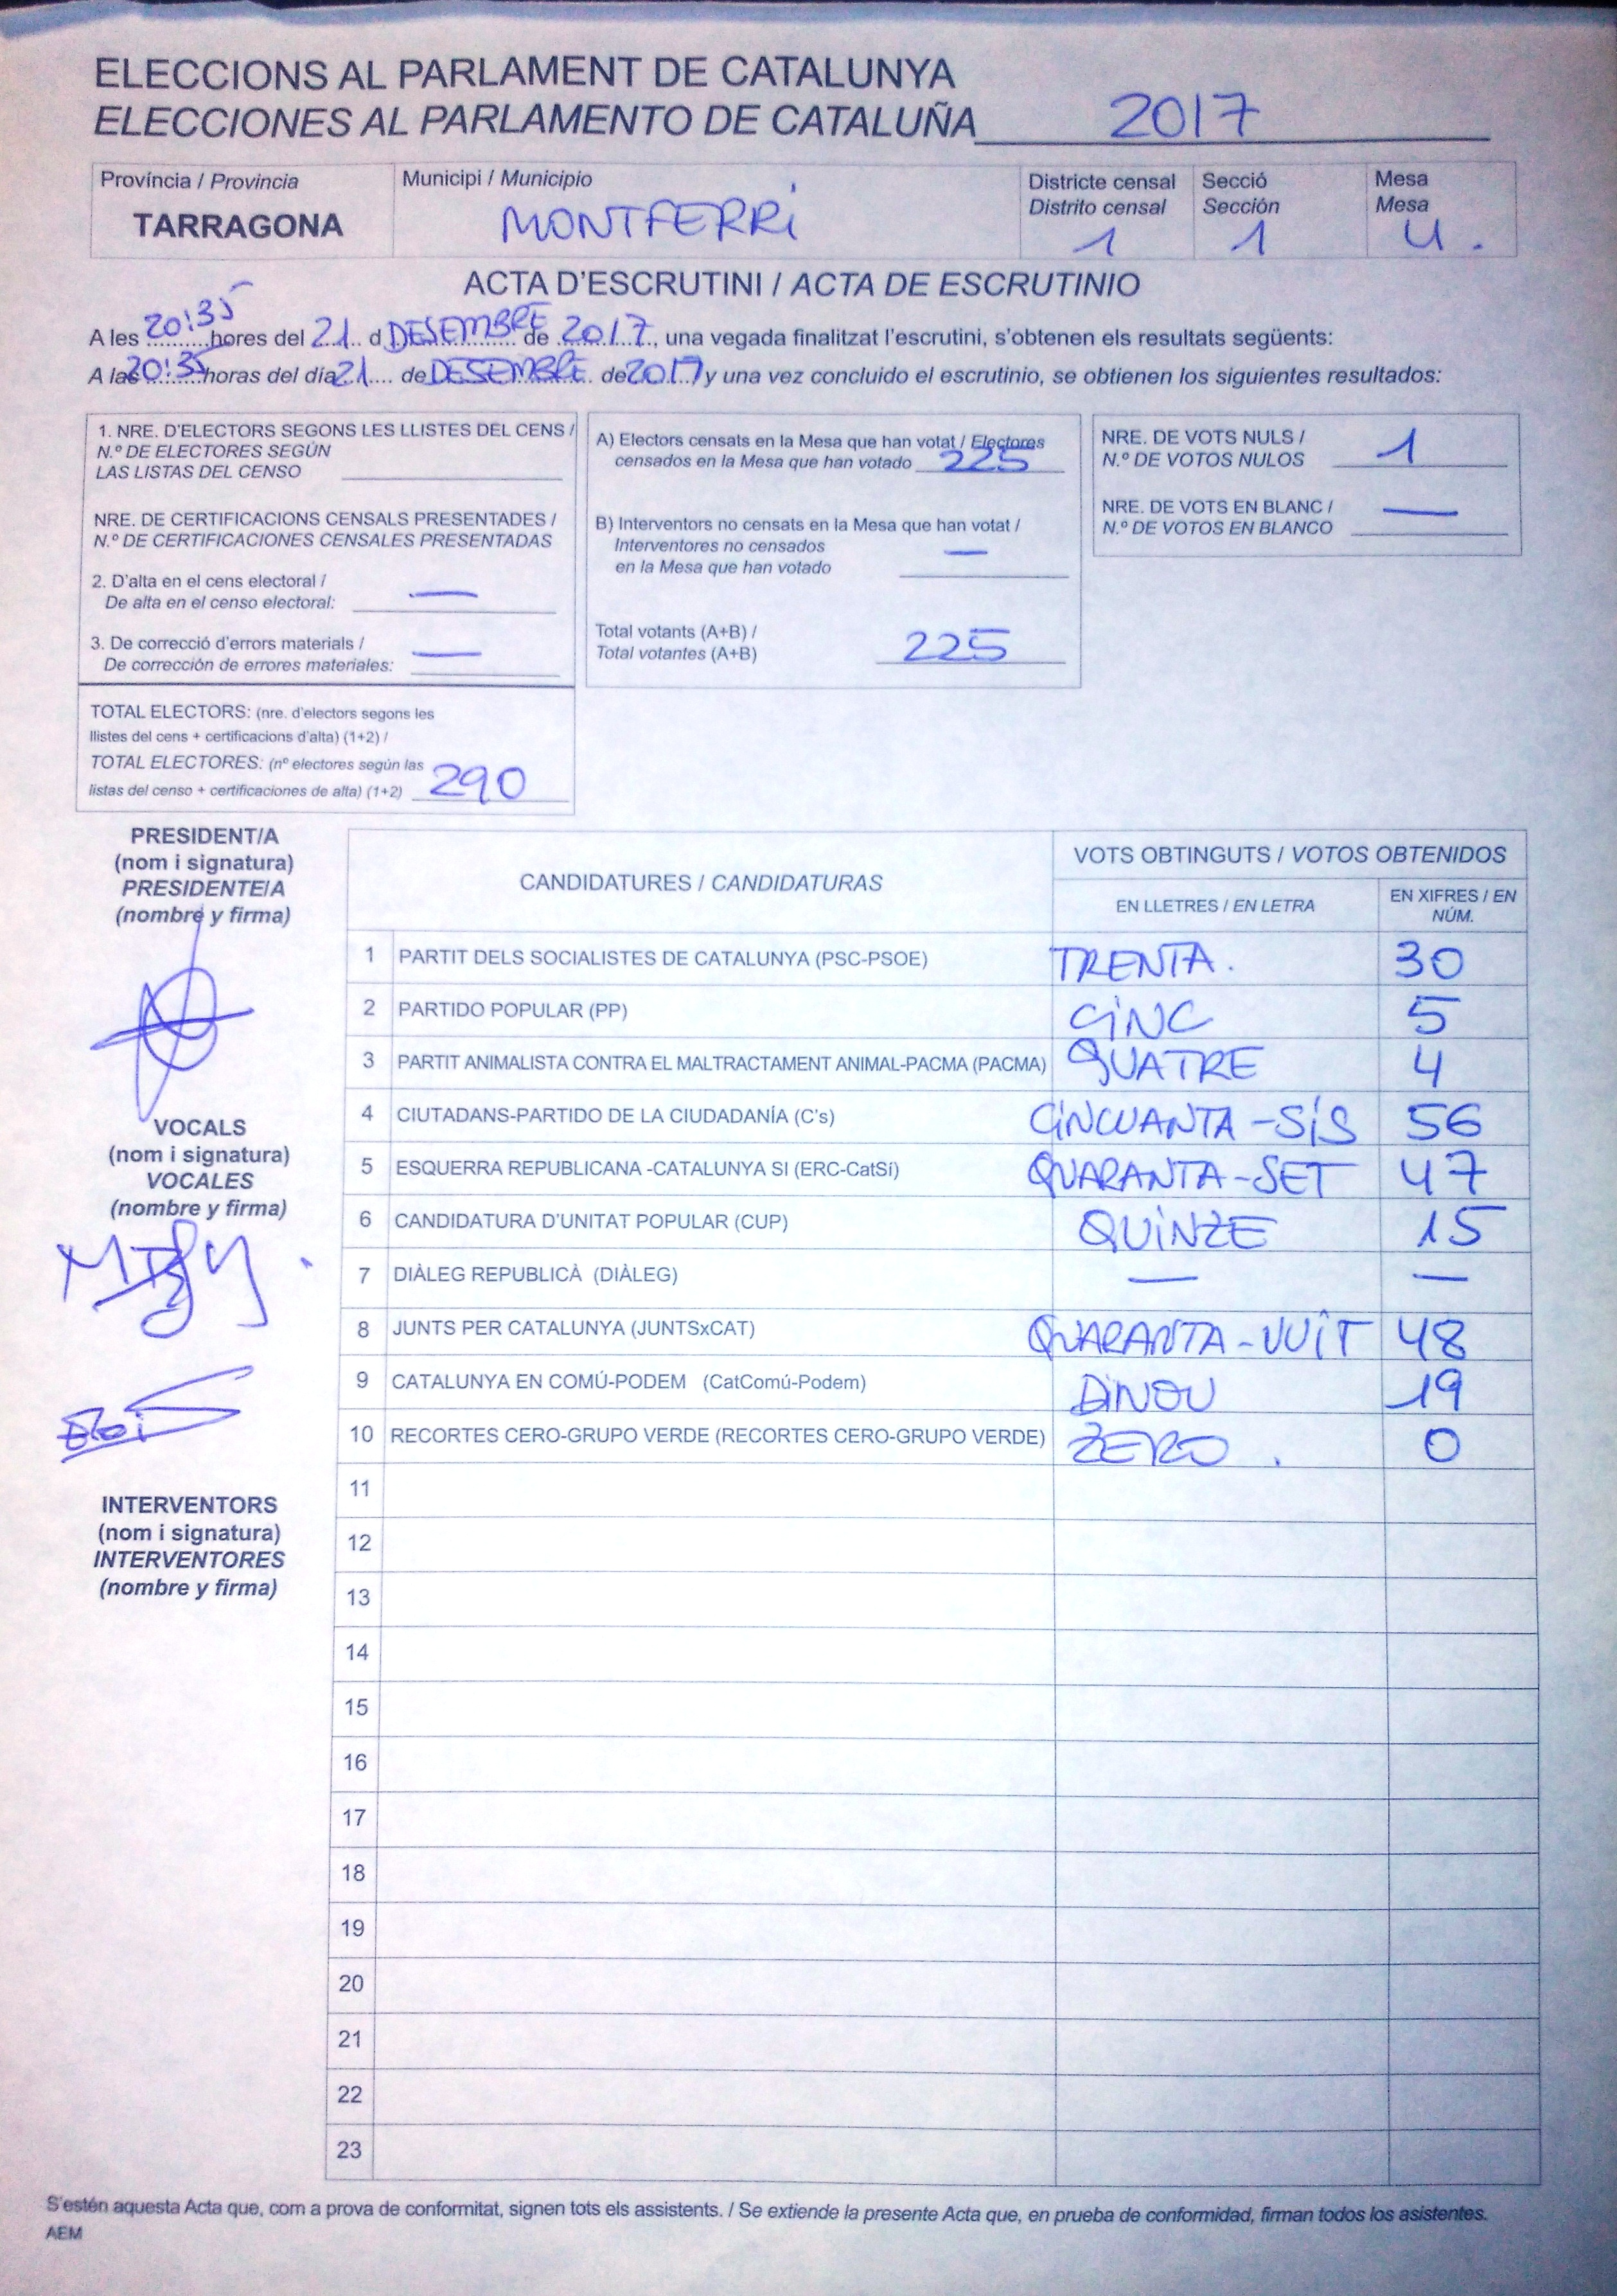 ELECCIONS AL PARLAMENT DE CATALUNYA
ELECCIONES AL PARLAMENTO DE CATALUÑA 2017
Província / Provincia
TARRAGONA
Municipi / Municipio
MONTFERRI
Districte censal
Distrito censal
1
Secció
Sección
1
Mesa
Mesa
U.
ACTA D'ESCRUTINI / ACTA DE ESCRUTINIO
A les 20:35 hores del 21 d DESEMBRE de 2017, una vegada finalitzat l'escrutini, s'obtenen els resultats següents:
A las 20:35 horas del día 21 de DESEMBRE de 2017 y una vez concluido el escrutinio, se obtienen los siguientes resultados:
1. NRE. D'ELECTORS SEGONS LES LLISTES DEL CENS /
N.º DE ELECTORES SEGÚN
LAS LISTAS DEL CENSO
NRE. DE CERTIFICACIONS CENSALS PRESENTADES /
N.º DE CERTIFICACIONES CENSALES PRESENTADAS
2. D'alta en el cens electoral /
De alta en el censo electoral: —
3. De correcció d'errors materials /
De corrección de errores materiales: —
TOTAL ELECTORS: (nre. d'electors segons les
llistes del cens + certificacions d'alta) (1+2) /
TOTAL ELECTORES: (nº electores según las
listas del censo + certificaciones de alta) (1+2) 290
A) Electors censats en la Mesa que han votat / Electores
censados en la Mesa que han votado 225
B) Interventors no censats en la Mesa que han votat /
Interventores no censados
en la Mesa que han votado —
Total votants (A+B) /
Total votantes (A+B) 225
NRE. DE VOTS NULS /
N.º DE VOTOS NULOS 1
NRE. DE VOTS EN BLANC /
N.º DE VOTOS EN BLANCO —
PRESIDENT/A
(nom i signatura)
PRESIDENTE/A
(nombre y firma)
VOCALS
(nom i signatura)
VOCALES
(nombre y firma)
INTERVENTORS
(nom i signatura)
INTERVENTORES
(nombre y firma)
CANDIDATURES / CANDIDATURAS
VOTS OBTINGUTS / VOTOS OBTENIDOS
EN LLETRES / EN LETRA
EN XIFRES / EN
NÚM.
1 PARTIT DELS SOCIALISTES DE CATALUNYA (PSC-PSOE) TRENTA. 30
2 PARTIDO POPULAR (PP) CINC 5
3 PARTIT ANIMALISTA CONTRA EL MALTRACTAMENT ANIMAL-PACMA (PACMA) QUATRE 4
4 CIUTADANS-PARTIDO DE LA CIUDADANÍA (C's) CINCUANTA-SÍS 56
5 ESQUERRA REPUBLICANA -CATALUNYA SI (ERC-CatSí) QUARANTA-SET 47
6 CANDIDATURA D'UNITAT POPULAR (CUP) QUINZE 15
7 DIÀLEG REPUBLICÀ (DIÀLEG) — —
8 JUNTS PER CATALUNYA (JUNTSxCAT) QUARANTA-VUIT 48
9 CATALUNYA EN COMÚ-PODEM (CatComú-Podem) DINOU 19
10 RECORTES CERO-GRUPO VERDE (RECORTES CERO-GRUPO VERDE) ZERO. 0
11
12
13
14
15
16
17
18
19
20
21
22
23
S'estén aquesta Acta que, com a prova de conformitat, signen tots els assistents. / Se extiende la presente Acta que, en prueba de conformidad, firman todos los asistentes.
AEM